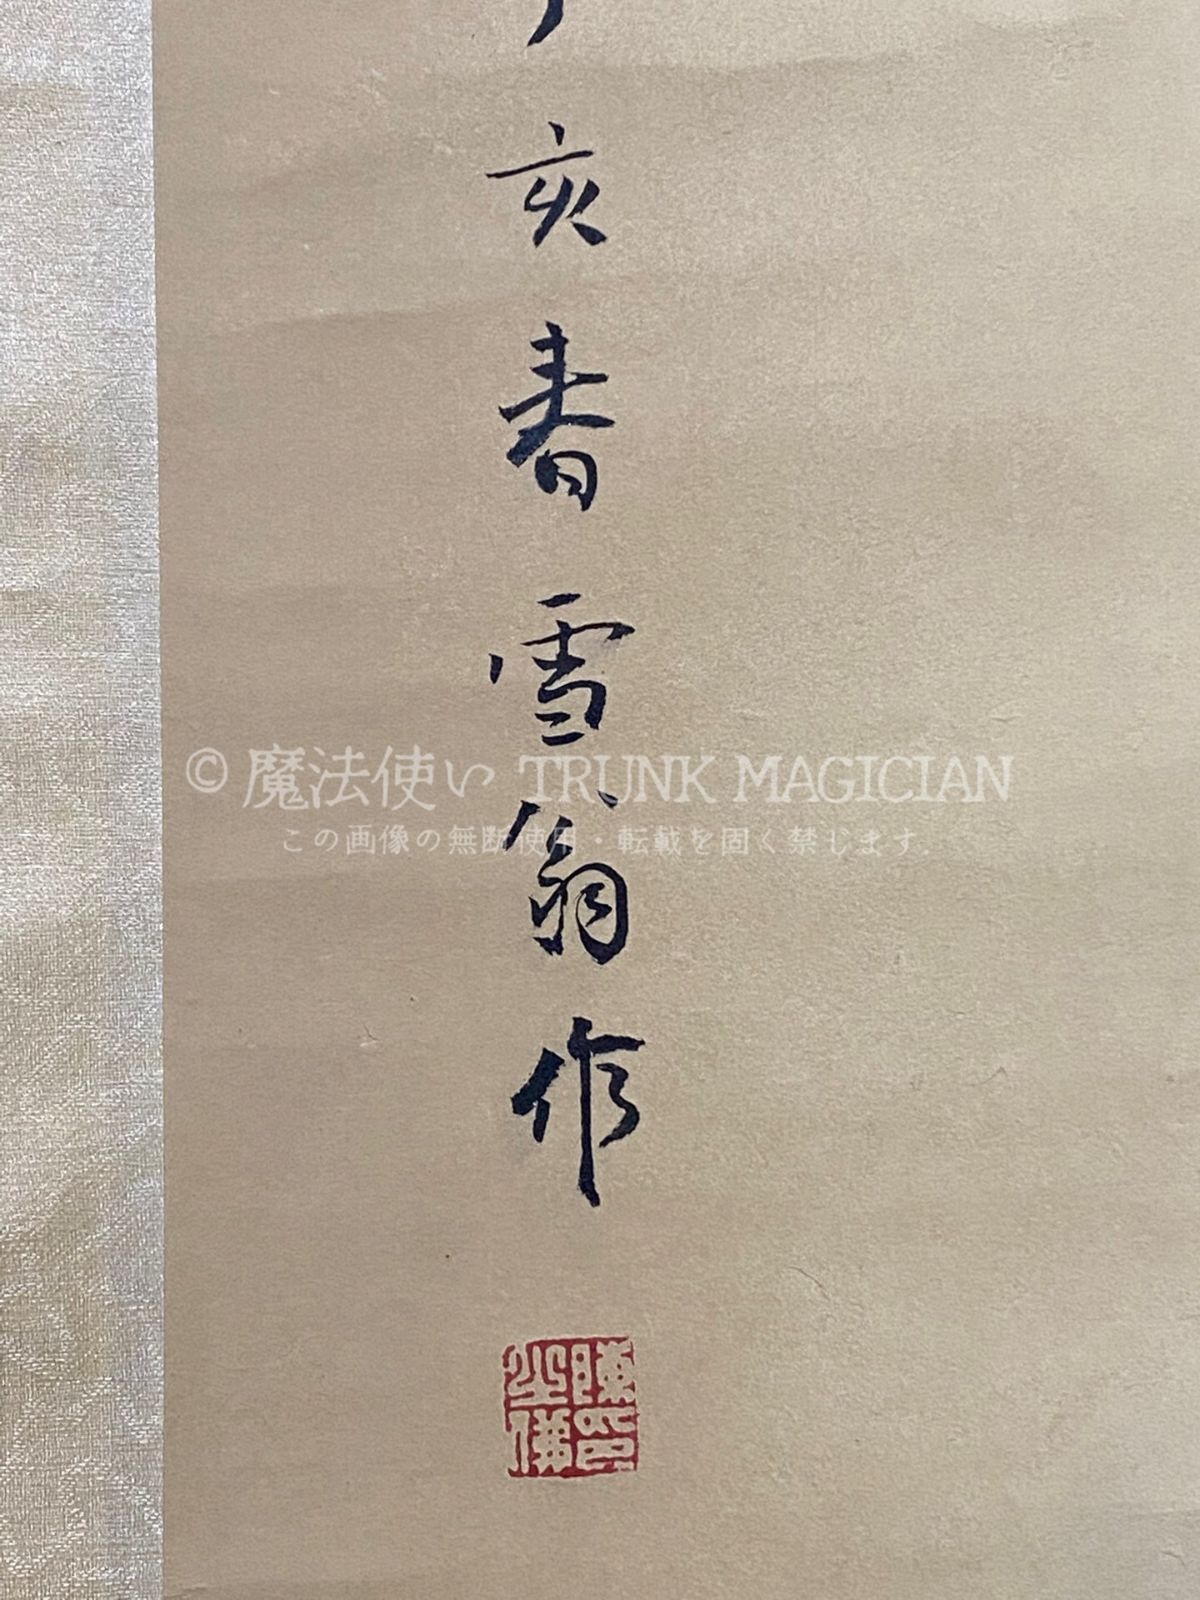 亥春雪翁作
© 魔法使い TRUNK MAGICIAN
この画像の無断使用・転載を固く禁じます.